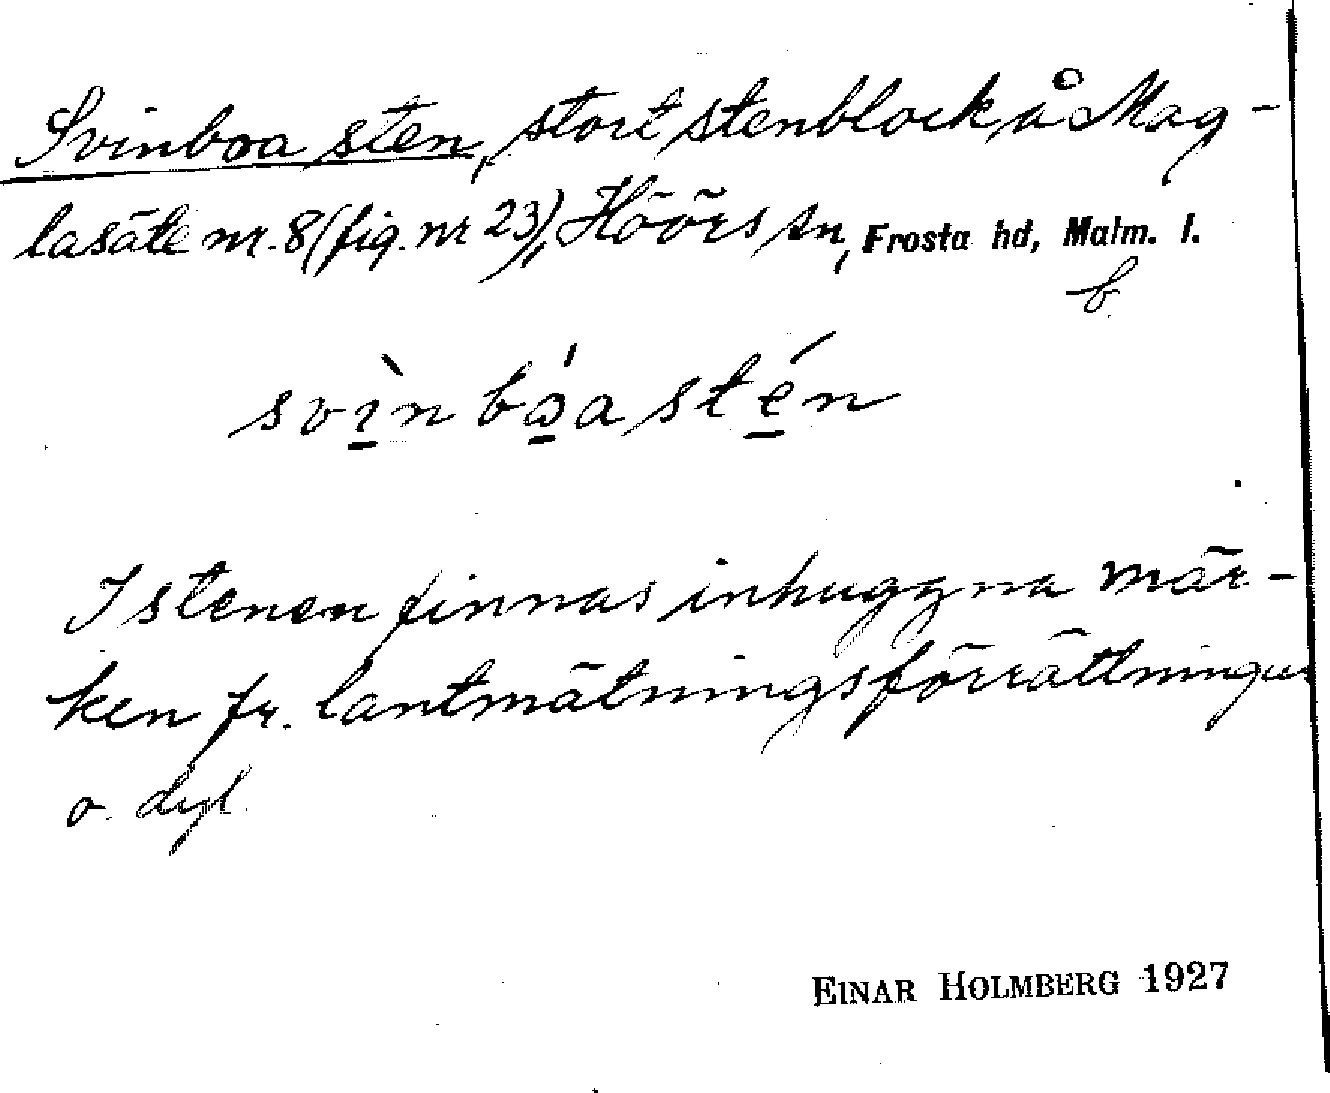 Svinboa sten, stort stenblock å Mag-
lasäte nr. 8 (fig. nr 23), Höörs sn, Frosta hd, Malm. l.
b.
svìnbóastén
I stenen finnas inhuggna mär-
ken fr. lantmätningsförrättningar
o. dyl.
EINAR HOLMBERG 1927